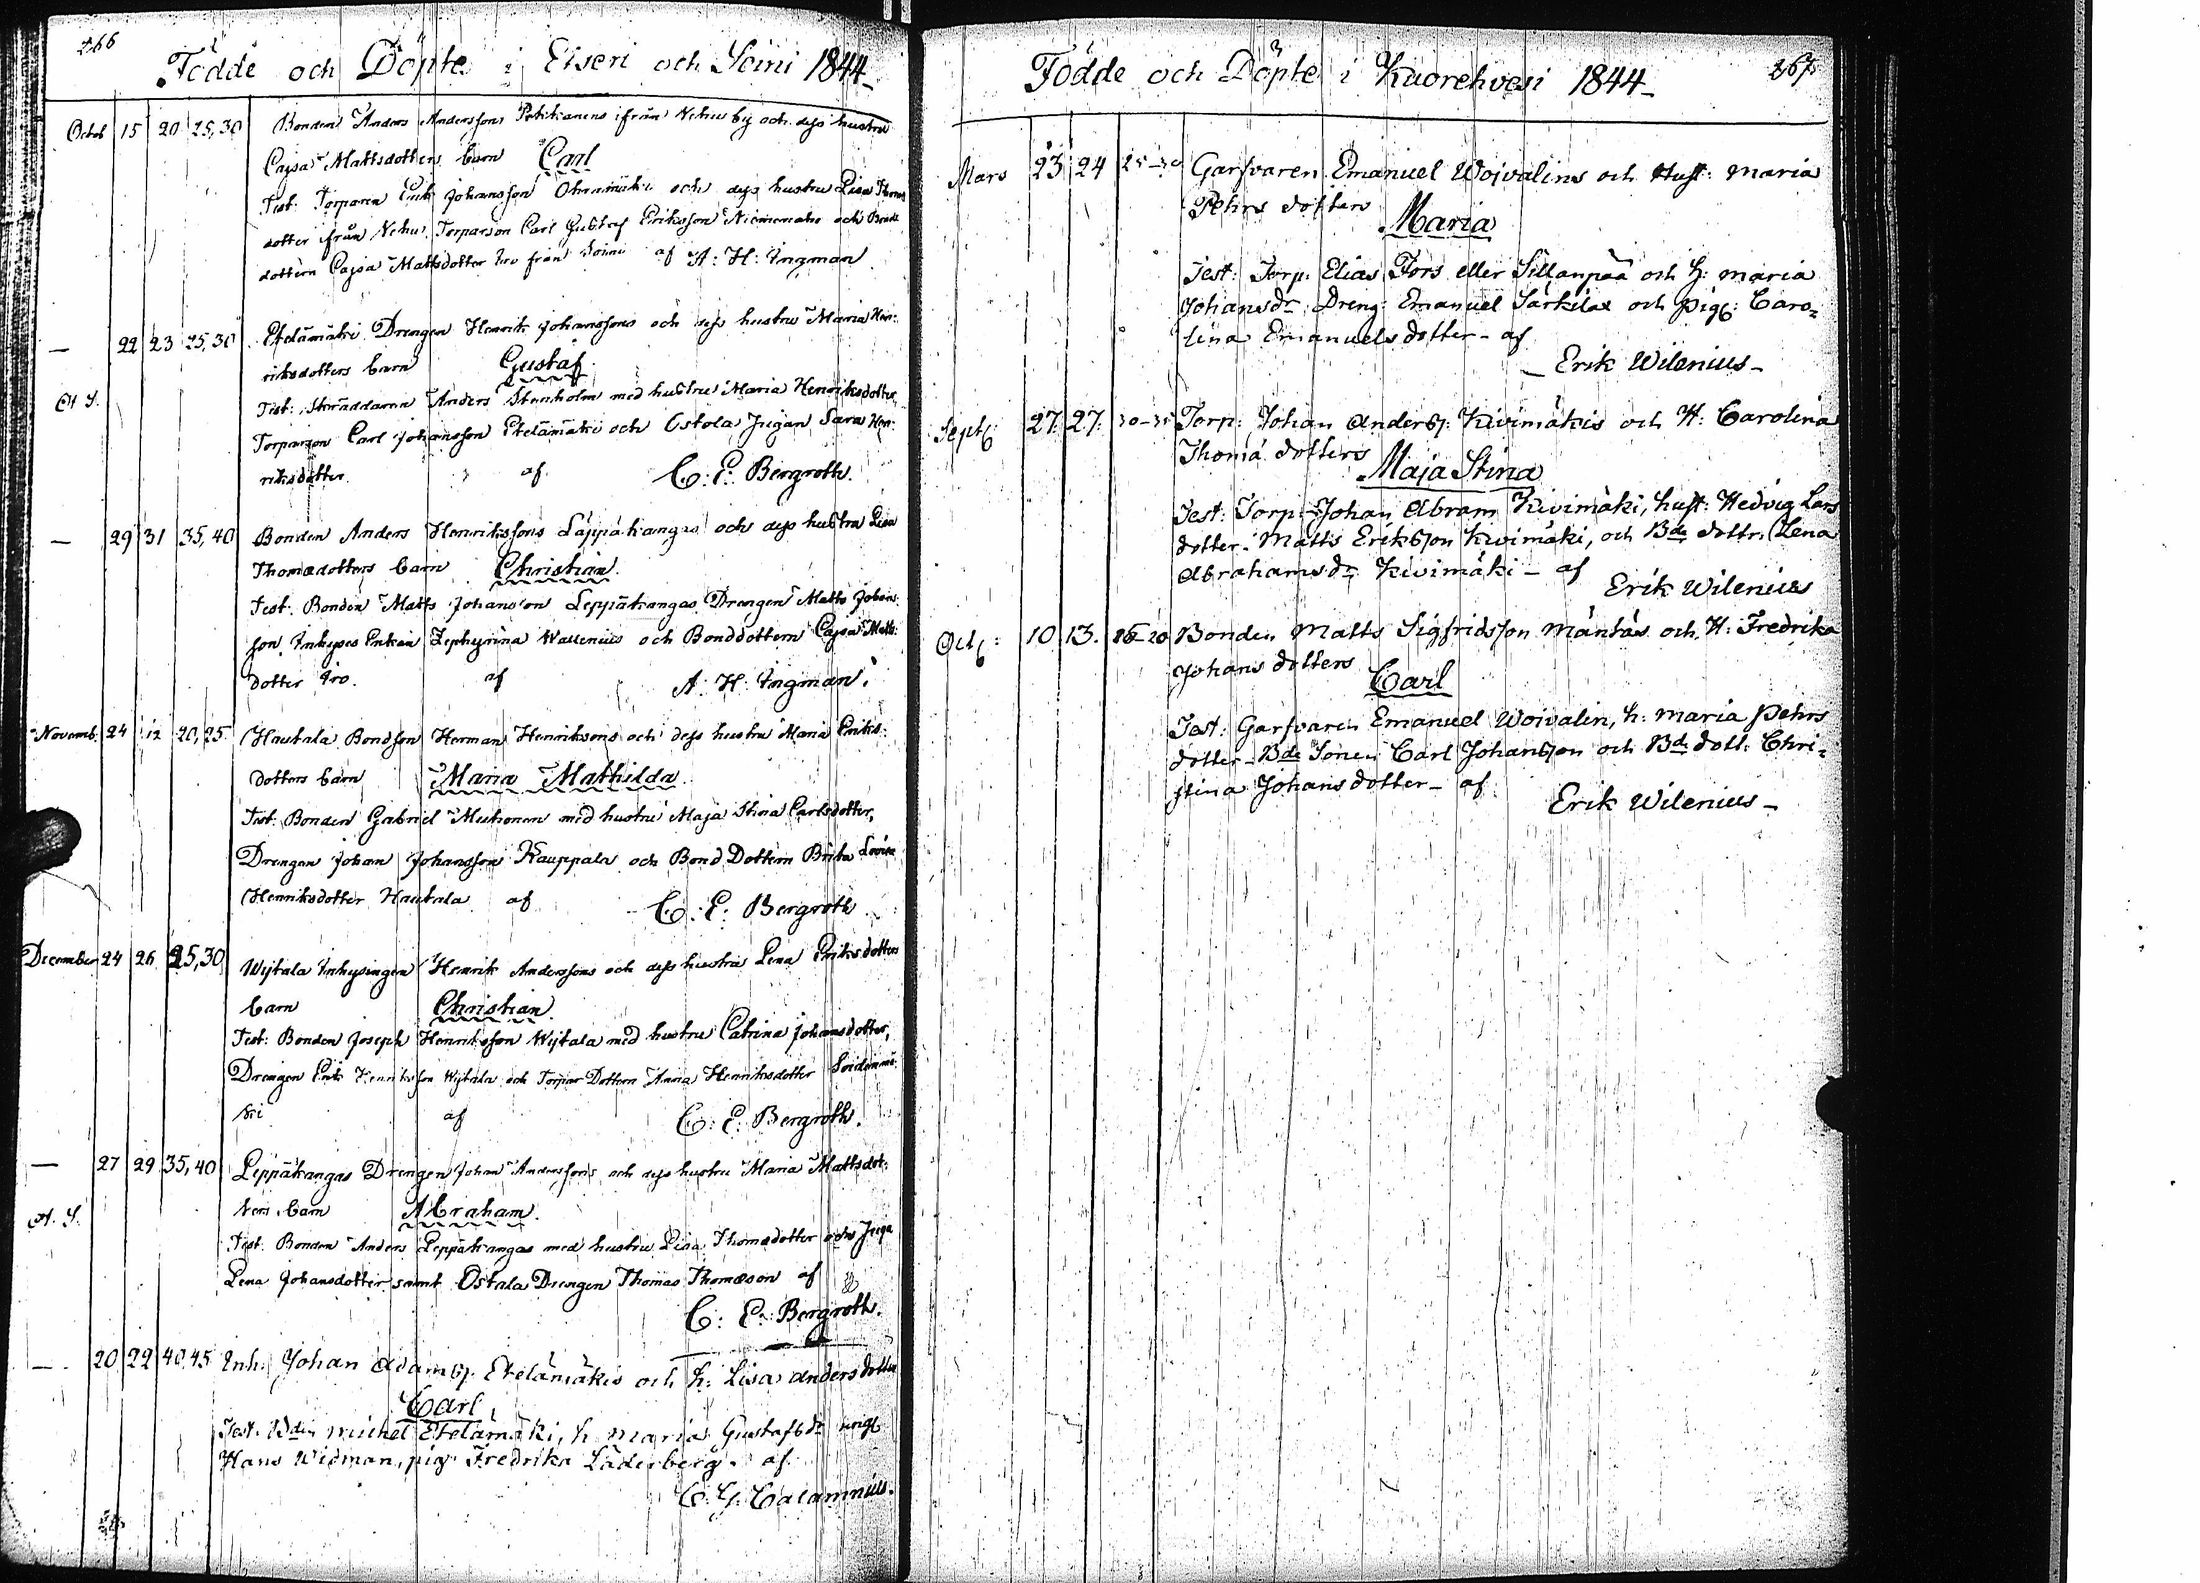 266
Födde och Döpte i Etseri och Soini 1844
Octob 15 20 25,30 Bonden Anders Anderssons ifrån Nehus by och dess hustru
Cajsa Mattsdotters barn Carl
Test: Torparen Erik Johansson och dess hustru Lisa
dotter ifrån Nehus, Torparson Carl Gustaf Eriksson och Bond
dottern Cajsa Mattsdotter Iro från Soini af A: H: Ingman
— 22 23 25,30 Etelämäki Drengen Henrik Johanssons och dess hustru Maria Hen:
riksdotters barn Gustaf
Test: Skräddaren Anders Stenholm med hustru Maria Henriksdotter,
Torparson Carl Johansson Etelämäki och Ostola Pigan Sara Hen:
riksdotter. af C: E: Bergroth.
— 29 31 35,40 Bonden Anders Henrikssons Läppäkangas och dess hustru Lisa
Thomædotters barn Christian.
Test: Bonden Matts Johansson Leppäkangas, Drengen Matts Johans:
son, Enkan Zephyrina Wallenius och Bonddottern Cajsa Matts:
dotter Iro. af A: H: Ingman.
Novemb. 24 12 20,25 Hautala Bondson Herman Henriksons och dess hustru Maria Eriks:
dotters barn Maria Mathilda
Test: Bonden Gabriel Mutkonen med hustru Maja Stina Carlsdotter,
Drengen Johan Johansson Kauppala och Bond Dottern Brita Lovisa
Henriksdotter Hautala af C: E: Bergroth
December 24 26 25,30 Wijtala Inhysingen Henrik Anderssons och dess hustru Lena Eriksdotters
barn Christian.
Test: Bonden Joseph Henriksson Wijtala med hustru Catrina Johansdotter,
Drengen Erik Henriksson Wijtala och Torpar Dottern Anna Henriksdotter Soidinmä:
ki af C: E: Bergroth.
— 27 29 35,40 Leppäkangas Drengen Johan Anderssons och dess hustru Maria Mattsdot:
ters barn Abraham.
Test: Bonden Anders Leppäkangas med hustru Lisa Thomædotter och Piga
Lena Johansdotter samt Ostala Drengen Thomas Thomæson af
C: E: Bergroth.
— 20 22 40,45 Inh: Johan Adamss. Etelämäkis och h: Lisa Andersdotter
Carl
Test: Bden Michel Etelämäki, h Maria Gustafsdr yngl
Hans Widman, pig Fredrika Läderberg. af
C. G. Calamnius.
267
Födde och Döpte i Kuorehvesi 1844
Mars 23 24 25-30 Garfvaren Emanuel Woivalins och Hust: Maria
Pehrs dotters
Maria
Test: Torp: Elias Fors eller Sillanpää och H: Maria
Johansdr Dreng: Emanuel Särkilax och pig: Caro=
lina Emanuels dotter – af
Erik Wilenius –
Sept: 27. 27. 30-35 Torp: Johan Anderss: Kivimäkis och H: Carolina
Thomä dotters
Maja Stina
Test: Torp: Johan Abram Kivimäki, hust: Hedvig Lars
dotter: Matts Eriksson Kivimäki, och Bde dottr: Lena
Abrahamsdr Kivimäki – af
Erik Wilenius
Oct: 10 13. 16-20 Bonden Matts Sigfridsson Mäntäs och H: Fredrika
Johans dotters
Carl
Test: Garfvaren Emanuel Woivalin, h: Maria Pehrs
dotter – Bde Sonen Carl Johansson och Bde dott: Chri=
stina Johans dotter – af
Erik Wilenius –